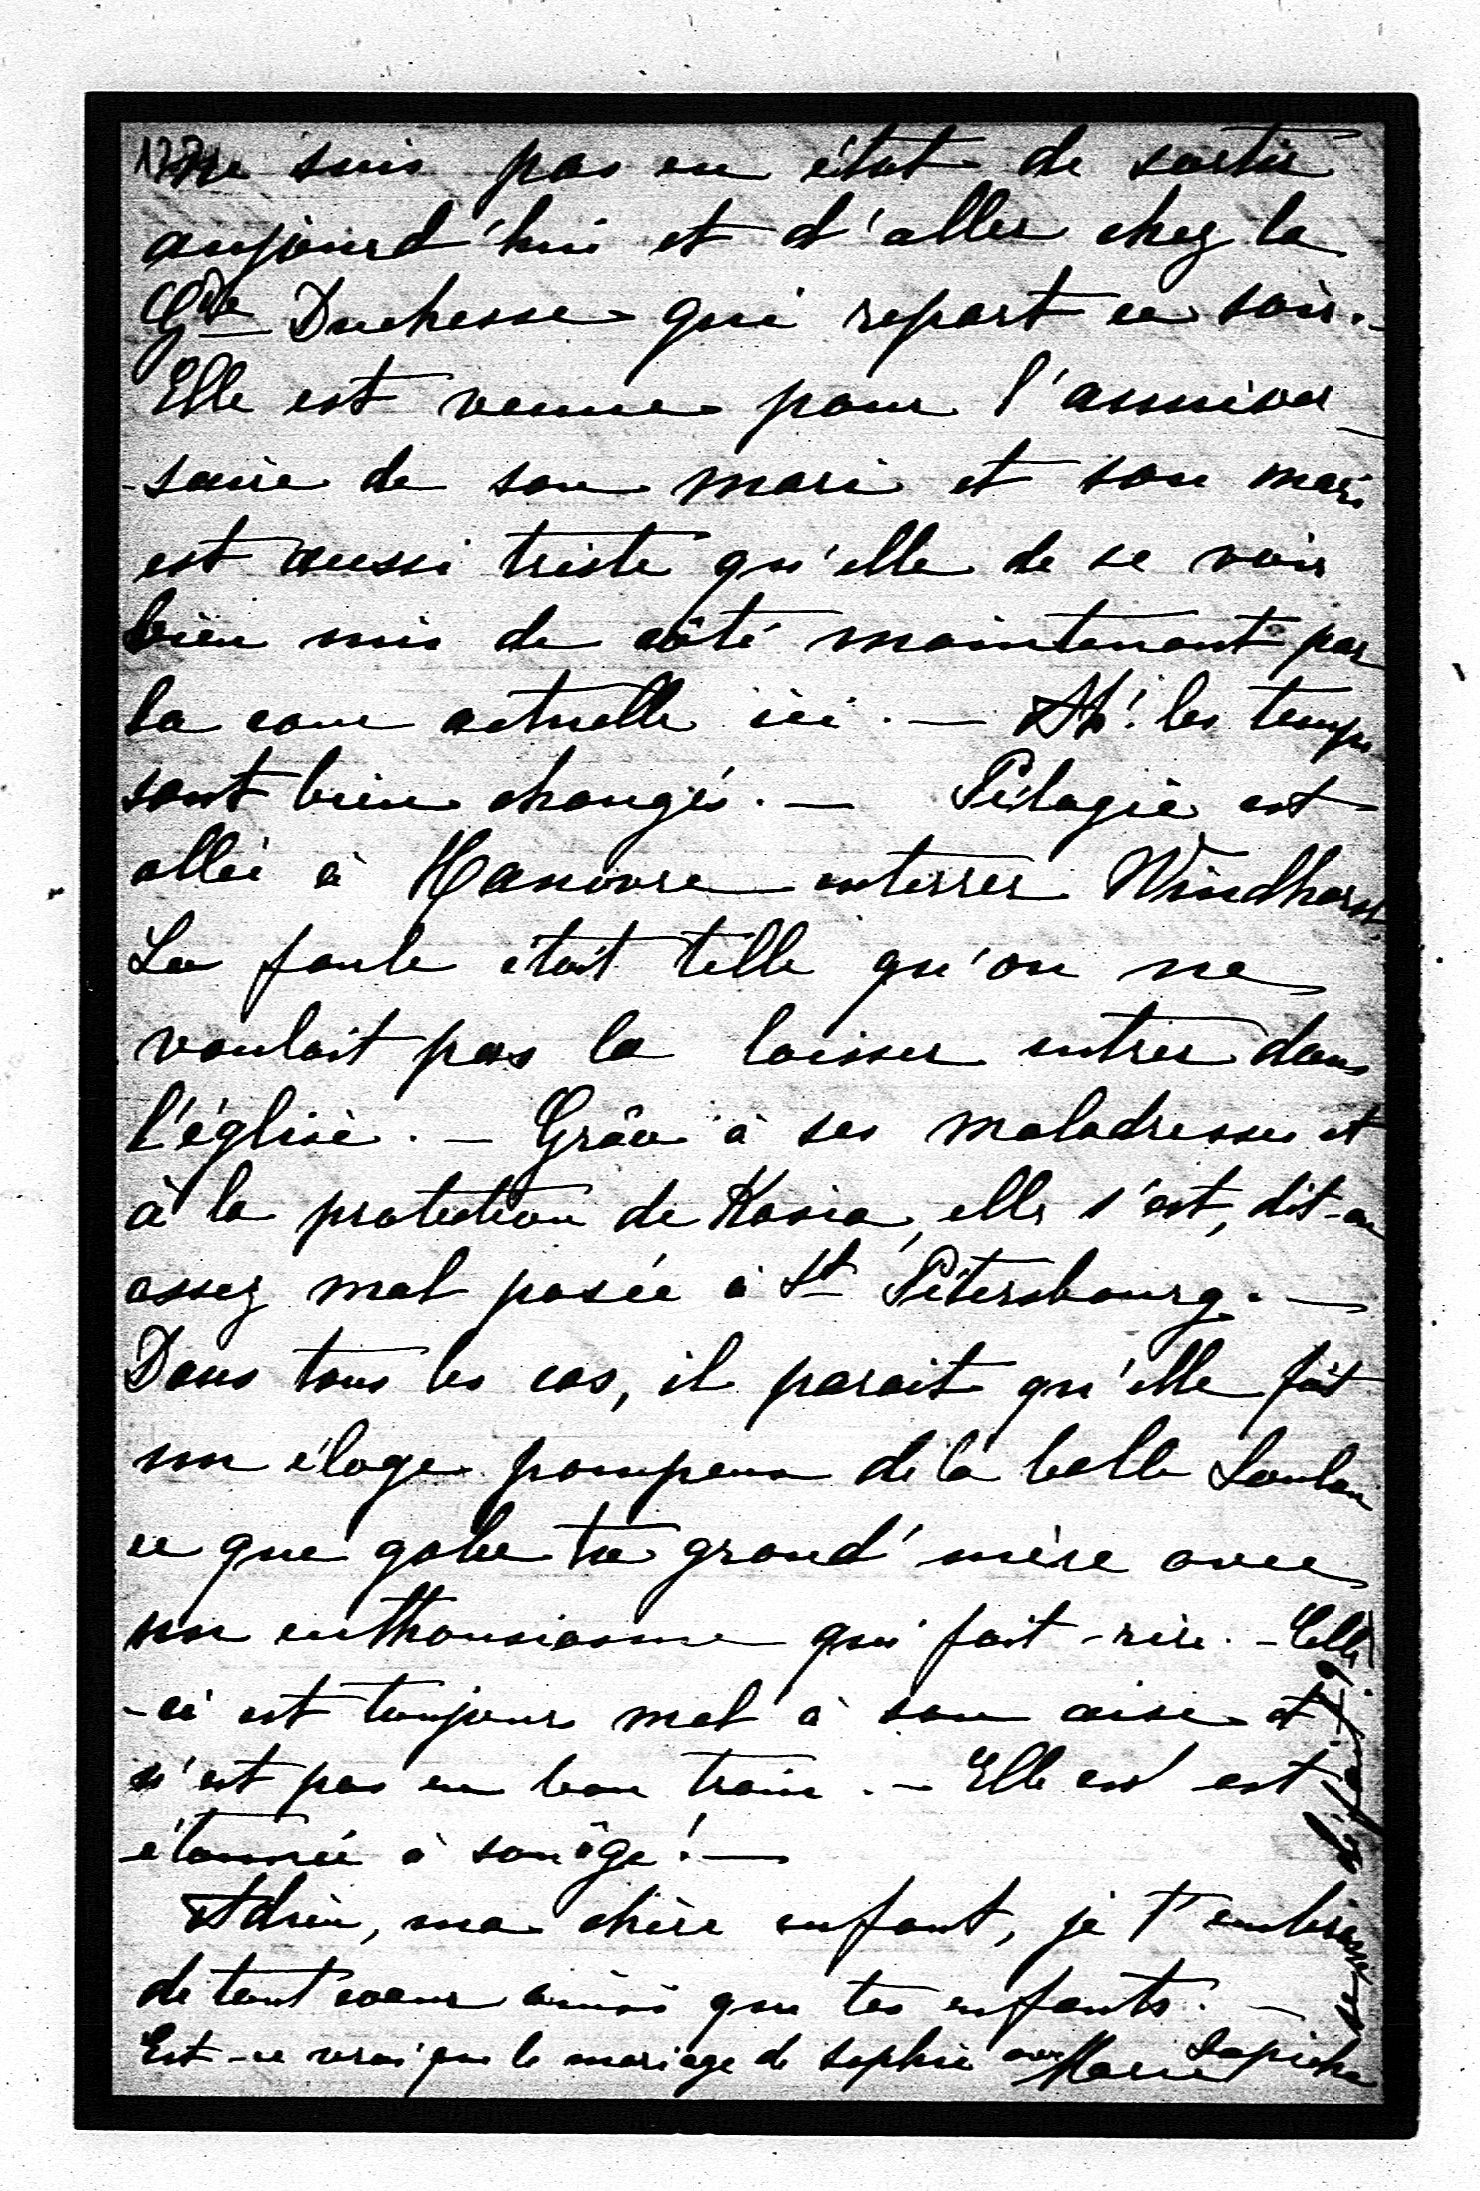 ne suis pas en état de sortir
aujourd'hui et d'aller chez la
Gde Duchesse qui repart ce soir. -
Elle est venue pour l'anniver
-saire de son mari et son mari
est aussi triste qu'elle de se voir
bien mis de côté maintenant par
la cour actuelle ici. — Ah! les temps
sont bien changés. — Pélagie est
allée à Hanovre enterrer Windhorst.
La foule était telle qu'on ne
voulait pas la laisser entrer dans
l'église. — Grâce à ses maladresses et
à la protection de Kasia, elle s'est, dit-on
assez mal posée à St Pétersbourg. —
Dans tous les cas, il parait qu'elle fait
un éloge pompeux de la belle Loulou
ce que gobe ta grand'mère avec
un enthousiasme qui fait rire. - Celle
-ci est toujours mal à son aise et
n'est pas en bon train. — Elle en est
étonnée à son âge! —
Adieu, ma chère enfant, je t'embrasse
de tout coeur ainsi que tes enfants. —
Est-ce vrai que le mariage de Sophie avec Sapieha
se